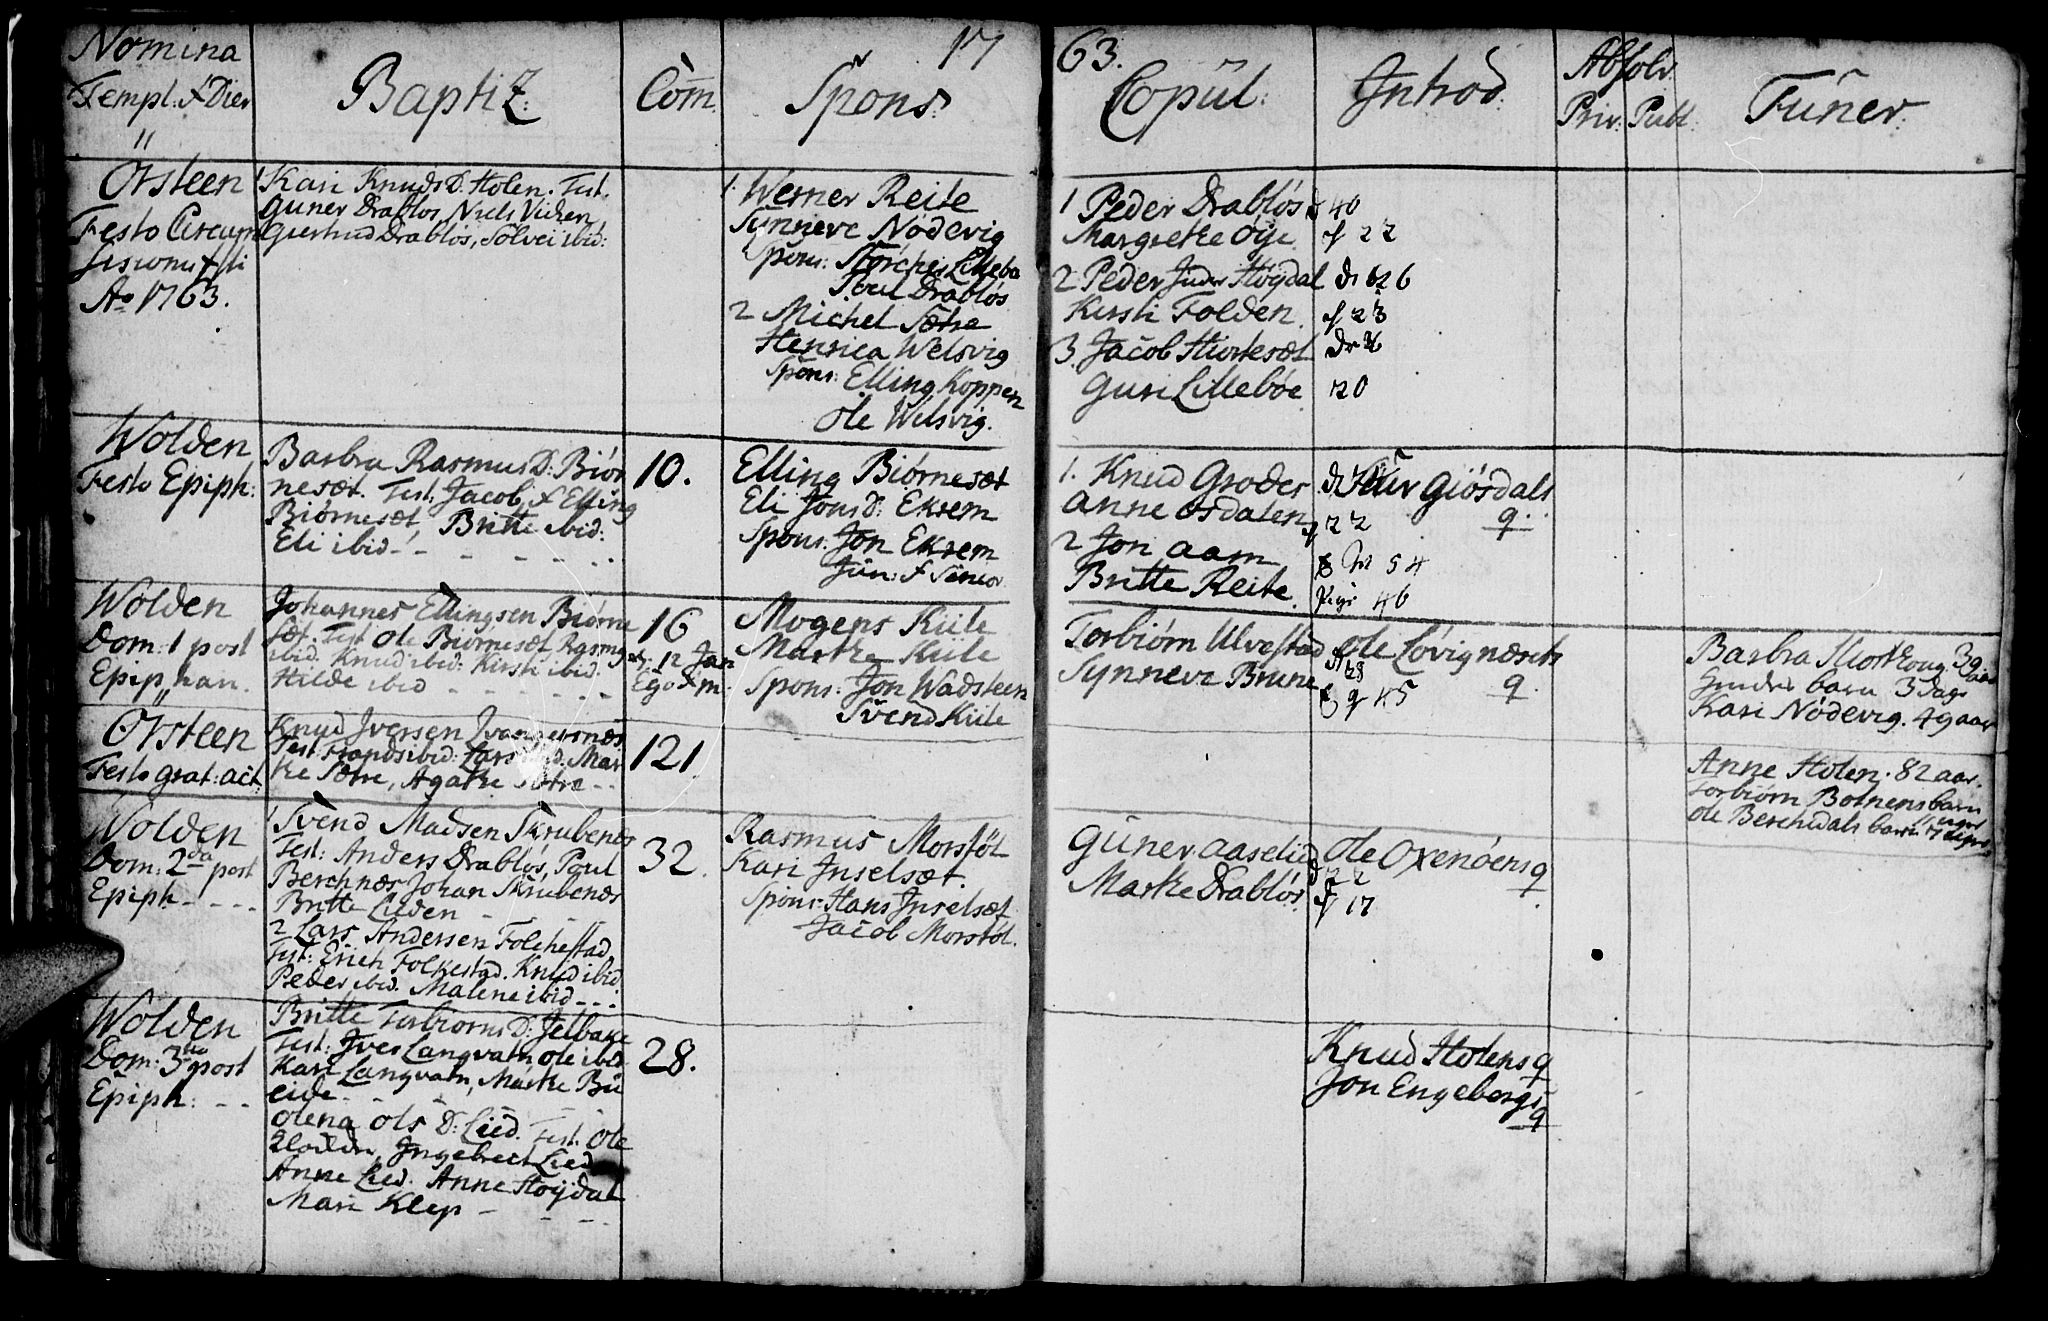 17 63.
Nomina
Templ: & Dier
Baptiz:
Com̄.
Spons:
Copul:
Introd:
Absolv.
Priv: Publ:
Funer:
Örsteen
Festo Circum
A° 1763.
1 Kari Knuds D. Holen. Test.
Guner Drabløs, Niels Vichen
Giertrud Drabløs, Sølvei ibid:
1. Werner Reite
Synneve Nødevig
Spons: Storches Lillebø
Poul Drabløs
2 Michel Sætre
Henrica Welsvig
Spons: Elling Koppen
Ole Welsvig.
1 Peder Drabløs 40
Margrethe Øye. 22
2 Peder Høydal dr 26
Kirsti Folden. 23
3. Jacob Hiortesæt dr
Guri Lillebøe. 20
Wolden
Festo Epiph:
Barbra Rasmus D: Biør
nesæt. Test. Jacob, & Elling
Biørnesæt, Britte ibid:
Eli ibid
10.
Elling Biørnesæt
Eli Jons D: Eksem
Spons: Jon Eksem
Jun: & Senior
1. Knud Grodes
Anne Osdalen 22
2 Jon Aam 54
Britte Reite. Pige 46
Giøsdals
q.
Wolden
Dom: 1 post
Epiphan.
Johannes Ellingsen Biørne
sæt. Test Ole Biørnesæt Rasmus
ibid. Knud ibid: Kirsti ibid.
Hilde ibid
16
12 Jan
Ego & m.
Mogens Kiile
Marthe Kiile
Spons: Jon Wadsteen
Svend Kiile
Torbiørn Ulvestad 28
Synneve Brune 45
Ole Løvignæsets
q
Barbra 39 aar
barn 3 Dage
Kari Nødevig. 49 aar
Örsteen
Festo grat: act.
Knud Iversen
Test. Frands ibid: Lars ibid. Mar
the Sætre, Agathe Sætre
121
Anne Holen. 82 aar.
Torbiørn Botnens barn
Ole Berchdals barn
Wolden
Dom: 2da post
Epiph
1 Svend Madsen Skrubenæs
Test: Anders Drabløs, Poul
Berchnæs Johan Skrubenæs
Britte Lieden
2 Lars Andersen Folchestad
Test: Erich Folkestad. Knud ibid
Peder ibid. Malene ibid
32.
Rasmus Morstøl
Kari Inselsæt.
Spons: Hans Inselsæt
Jacob Morstøl.
Guner Aaselied 22
Marthe Drabløs. 17
Ole Oxenøens q
Wolden
Dom: 3tia post
Epiph:
Britte Torbiorns D: Jelbake
Test: Iver Langvatn Ole ibid
Kari Langvatn, Marthe Bu
eide
Olena Ols D: Lied. Test. Ole
Ingebrect Lied
Anne Lied. Anne Høydal
Mari Klep
28.
Knud Holens q
Jon Engebergs
q